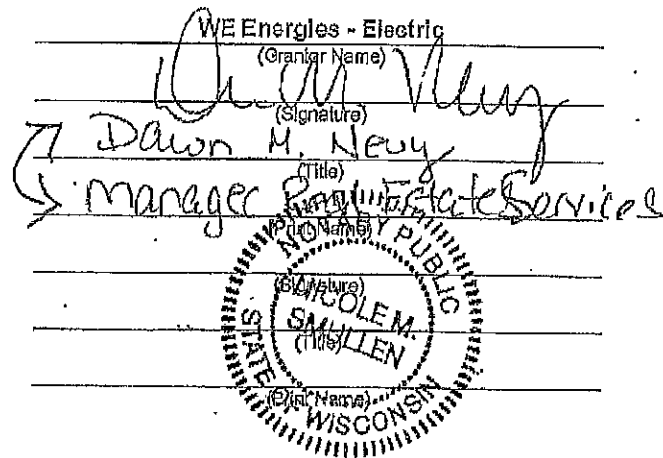 WE Energies - Electric
(Grantor Name)
(Signature)
Dawn M. Neuy
(Title)
Manager Real Estate Services
(Print Name)
(Signature)
(Title)
(Print Name)
NOTARY PUBLIC
NICOLE M.
SMULLEN
STATE OF WISCONSIN